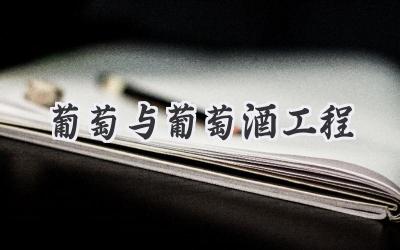 葡萄与葡萄酒工程